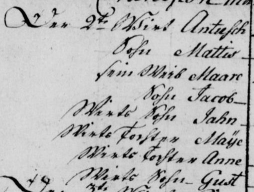 Der 2te Wirt Antusch
Sohn Mattes
sein Weib Maare
Sohn Jacob
Wirts Sohn Jahn
Wirts Tochter Maije
Wirts Tochter Anne
Wirts Sohn Gust
Der